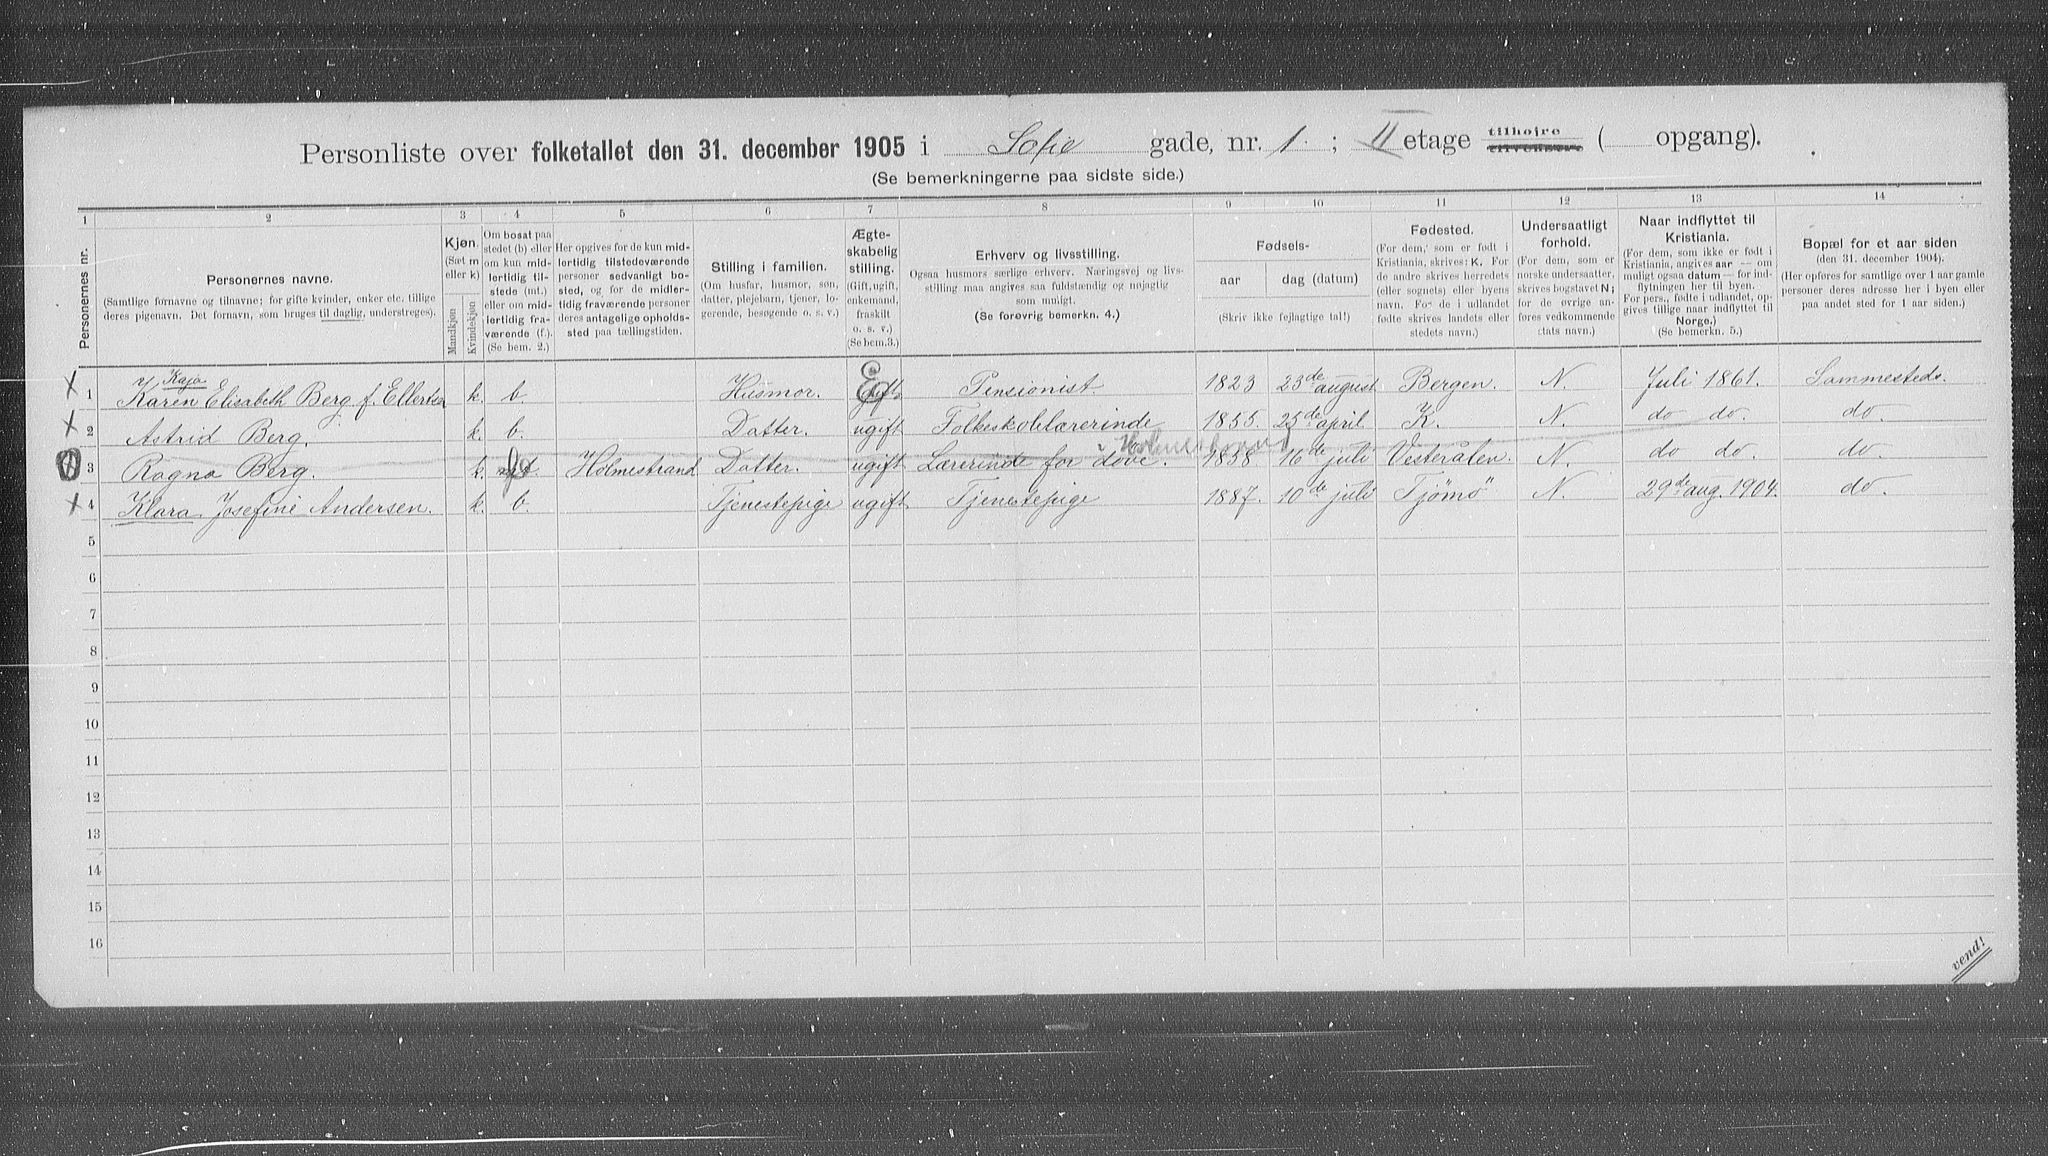 Personliste over folketallet den 31. december 1905 i Sofie gade, nr. 1. ; II etage tilhøjre tilvenstre ( opgang).
(Se bemerkningerne paa sidste side.)
1 2 3 4 5 6 7 8 9 10 11 12 13 14
Personernes nr.
Personernes navne.
(Samtlige fornavne og tilnavne; for gifte kvinder, enker etc. tillige
deres pigenavn. Det fornavn, som bruges til daglig, understreges).
Kjøn.
(Sæt m
eller k)
Mandkjøn
Kvindekjøn
Om bosat paa
stedet (b) eller
om kun mid-
lertidig til-
stede (mt.)
eller om mid-
lertidig fra-
værende (f.).
(Se bem. 2.)
Her opgives for de kun mid-
lertidig tilstedeværende
personer sedvanligt bo-
sted, og for de midler-
tidig fraværende personer
deres antagelige opholds-
sted paa tællingstiden.
Stilling i familien.
(Om husfar, husmor, søn,
datter, plejebarn, tjener, lo-
gerende, besøgende o. s. v.)
Ægte-
skabelig
stilling.
(Gift, ugift,
enkemand,
fraskilt
o. s. v.)
(Se bem.3.)
Erhverv og livsstilling.
Ogsaa husmors særlige erhverv. Næringsvej og livs-
stilling maa angives saa fuldstændig og nøjagtig
som muligt.
(Se forøvrig bemerkn. 4.)
Fødsels-
aar
dag (datum)
(Skriv ikke fejlagtige tal!)
Fødested.
(For dem, som er født i
Kristiania, skrives: K. For
de andre skrives herredets
(eller sognets) eller byens
navn. For de i udlandet
fødte skrives landets eller
stedets navn.)
Undersaatligt
forhold.
(For dem, som er
norske undersaatter,
skrives bogstavet N;
for de øvrige an-
føres vedkommende
stats navn.)
Naar indflyttet til
Kristiania.
(For dem, som ikke er født i
Kristiania, angives aar — om
muligt ogsaa datum — for ind-
flytningen her til byen.
For pers., fødte i udlandet, op-
gives tillige naar indflyttet til
Norge.)
(Se bemerkn. 5.)
Bopæl for et aar siden
(den 31. december 1904).
(Her opføres for samtlige over 1 aar gamle
personer deres adresse her i byen eller
paa andet sted for 1 aar siden.)
Kaja
1 Karen Elisabeth Berg f. Ellertsen k. b. Husmor. E gift. Pensionist. 1823 23de august Bergen. N. Juli 1861. Sammesteds.
2 Astrid Berg. k. b. Datter. ugift Folkeskolelærerinde 1855. 25de april K. N. do do. do.
Holmestrand
3 Ragna Berg. k. f Holmestrand Datter. ugift Lærerinde for døve. 1858 16de juli Vesterålen. N. do do. do.
4 Klara Josefine Andersen. k. b. Tjenestepige ugift. Tjenestepige 1887. 10de juli Tjömö N. 29de aug. 1904. do.
5
6
7
8
9
10
11
12
13
14
15
16
vend!